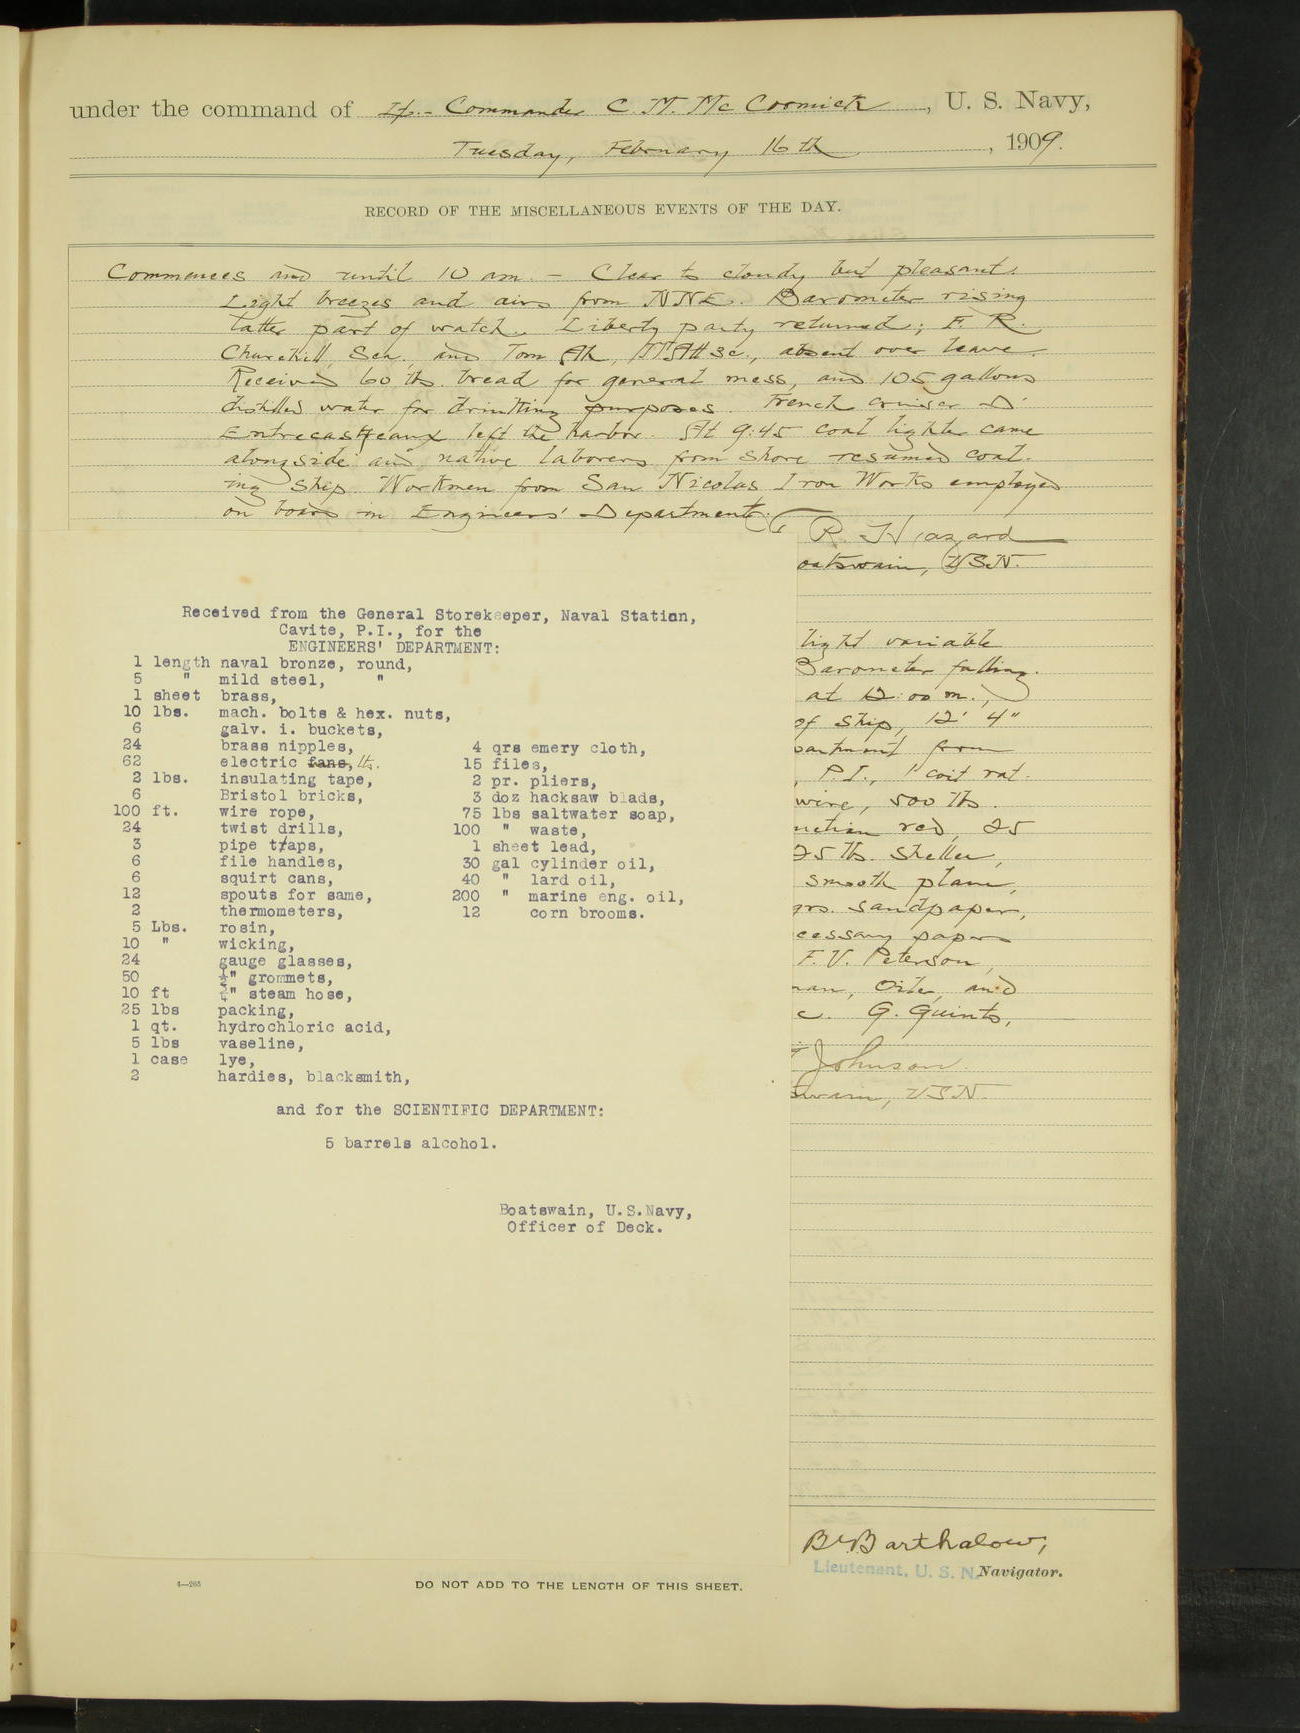 under the command of Lt.- Commander C. M. McCormick, U. S. Navy,
Tuesday, February 16th, 1909.
RECORD OF THE MISCELLANEOUS EVENTS OF THE DAY.
Commences and until 10 am. - Clear to cloudy but pleasant.
Light breezes and airs from NNE. Barometer rising
latter part of watch. Liberty party returned; F. R.
Churchill, Sea. and Tom Ah, absent over leave.
Received 60 lbs. bread for general mess, and 105 gallons
distilled water for drinking purposes. French cruiser D'
Entrecasteaux left the harbor. At 9:45 coal lighter came
alongside and native laborers from shore resumed coal-
ing ship. Workmen from San Nicolas Iron Works employed
on board in Engineers' Department.
R. Hazard
oatswain, USN.
light variable
Barometer falling.
at 12:00 m.,
of ship, 12' 4"
partment from
, P.I., 1 coil rat.
wire, 500 lbs.
nction red, 25
25 lbs. sheller,
smooth plane,
qrs. sandpaper,
cessary papers
F. V. Peterson,
man, Oiler, and
c. G. Quinto,
Johnson
swain, USN.
Received from the General Storekeeper, Naval Station,
Cavite, P.I., for the
ENGINEERS' DEPARTMENT:
1 length naval bronze, round,
5 " mild steel, "
1 sheet brass,
10 lbs. mach. bolts & hex. nuts,
6 galv. i. buckets,
24 brass nipples,
62 electric fans, lts.
2 lbs. insulating tape,
6 Bristol bricks,
100 ft. wire rope,
24 twist drills,
3 pipe taps,
6 file handles,
6 squirt cans,
12 spouts for same,
2 thermometers,
5 Lbs. rosin,
10 " wicking,
24 gauge glasses,
50 " grommets,
10 ft " steam hose,
25 lbs packing,
1 qt. hydrochloric acid,
5 lbs vaseline,
1 case lye,
2 hardies, blacksmith,
4 qrs emery cloth,
15 files,
2 pr. pliers,
3 doz hacksaw blads,
75 lbs saltwater soap,
100 " waste,
1 sheet lead,
30 gal cylinder oil,
40 " lard oil,
200 " marine eng. oil,
12 corn brooms.
and for the SCIENTIFIC DEPARTMENT:
5 barrels alcohol.
Boatswain, U.S.Navy,
Officer of Deck.
Barthalow,
Lieutenant, U. S. N. Navigator.
4—265
DO NOT ADD TO THE LENGTH OF THIS SHEET.